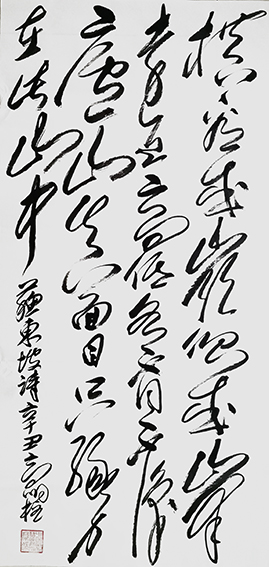 橫看成嶺側成峰
遠近高低各不同不識
廬山真面目只緣身
在此山中
蘇東坡詩辛丑